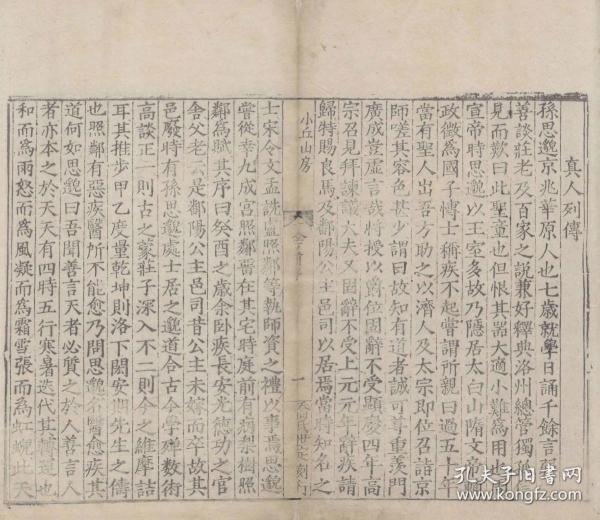 真人列傳
孫思邈京兆華原人也七歲就學日誦千餘言弱
善談莊老及百家之說兼好釋典洛州總管獨孤
見而歎曰此聖童也但恨其器大適小難為用也
宣帝時思邈以王室多故乃隱居太白山隋文帝輔
政徵為國子博士稱疾不起嘗謂所親曰過五十年
當有聖人出吾方助之以濟人及太宗即位召詣京
師嗟其容色甚少謂曰故知有道者誠可尊重羨門
廣成豈虛言哉將授以爵位固辭不受顯慶四年高
宗召見拜諫議大夫又固辭不受上元元年辭疾請
歸特賜良馬及鄱陽公主邑司以居焉當時知名之
小丘山房
一
士宋令文孟詵盧照鄰等執師資之禮以事焉思邈
嘗從幸九成宮照鄰留在其宅時庭前有病梨樹照
鄰為賦其序曰癸酉之歲余臥疾長安光德坊之官
舍父老云是鄱陽公主邑司昔公主未嫁而卒故其
邑廢時有孫思邈處士居之邈道合古今學殫數術
高談正一則古之蒙莊子深入不二則今之維摩詰
耳其推步甲乙度量乾坤則洛下閎安期先生之儔
也照鄰有惡疾醫所不能愈乃問思邈名醫愈疾其
道何如思邈曰吾聞善言天者必質之於人善言人
者亦本之於天天有四時五行寒暑迭代其轉運也
和而為雨怒而為風凝而為霜雪張而為虹蜺此天
孔夫子旧书网
www.kongfz.com